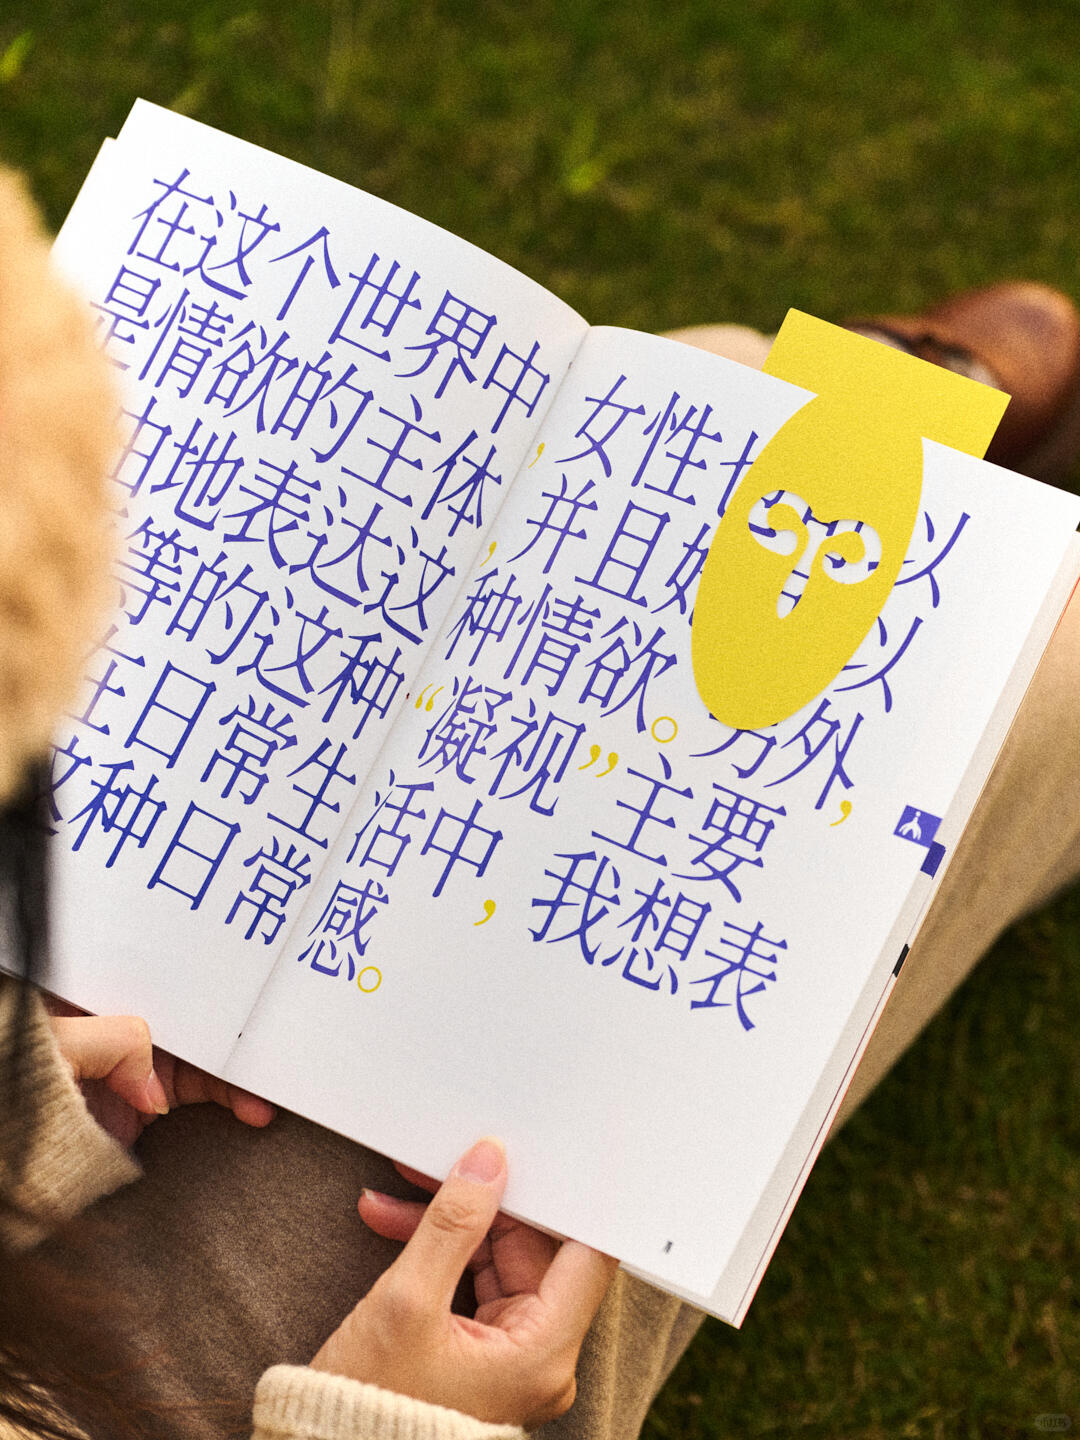 在这个世界中,女性也以
是情欲的主体,并且她以
由地表达这种情欲。另外,
等的这种“凝视”主要
在日常生活中,我想表
这种日常感。